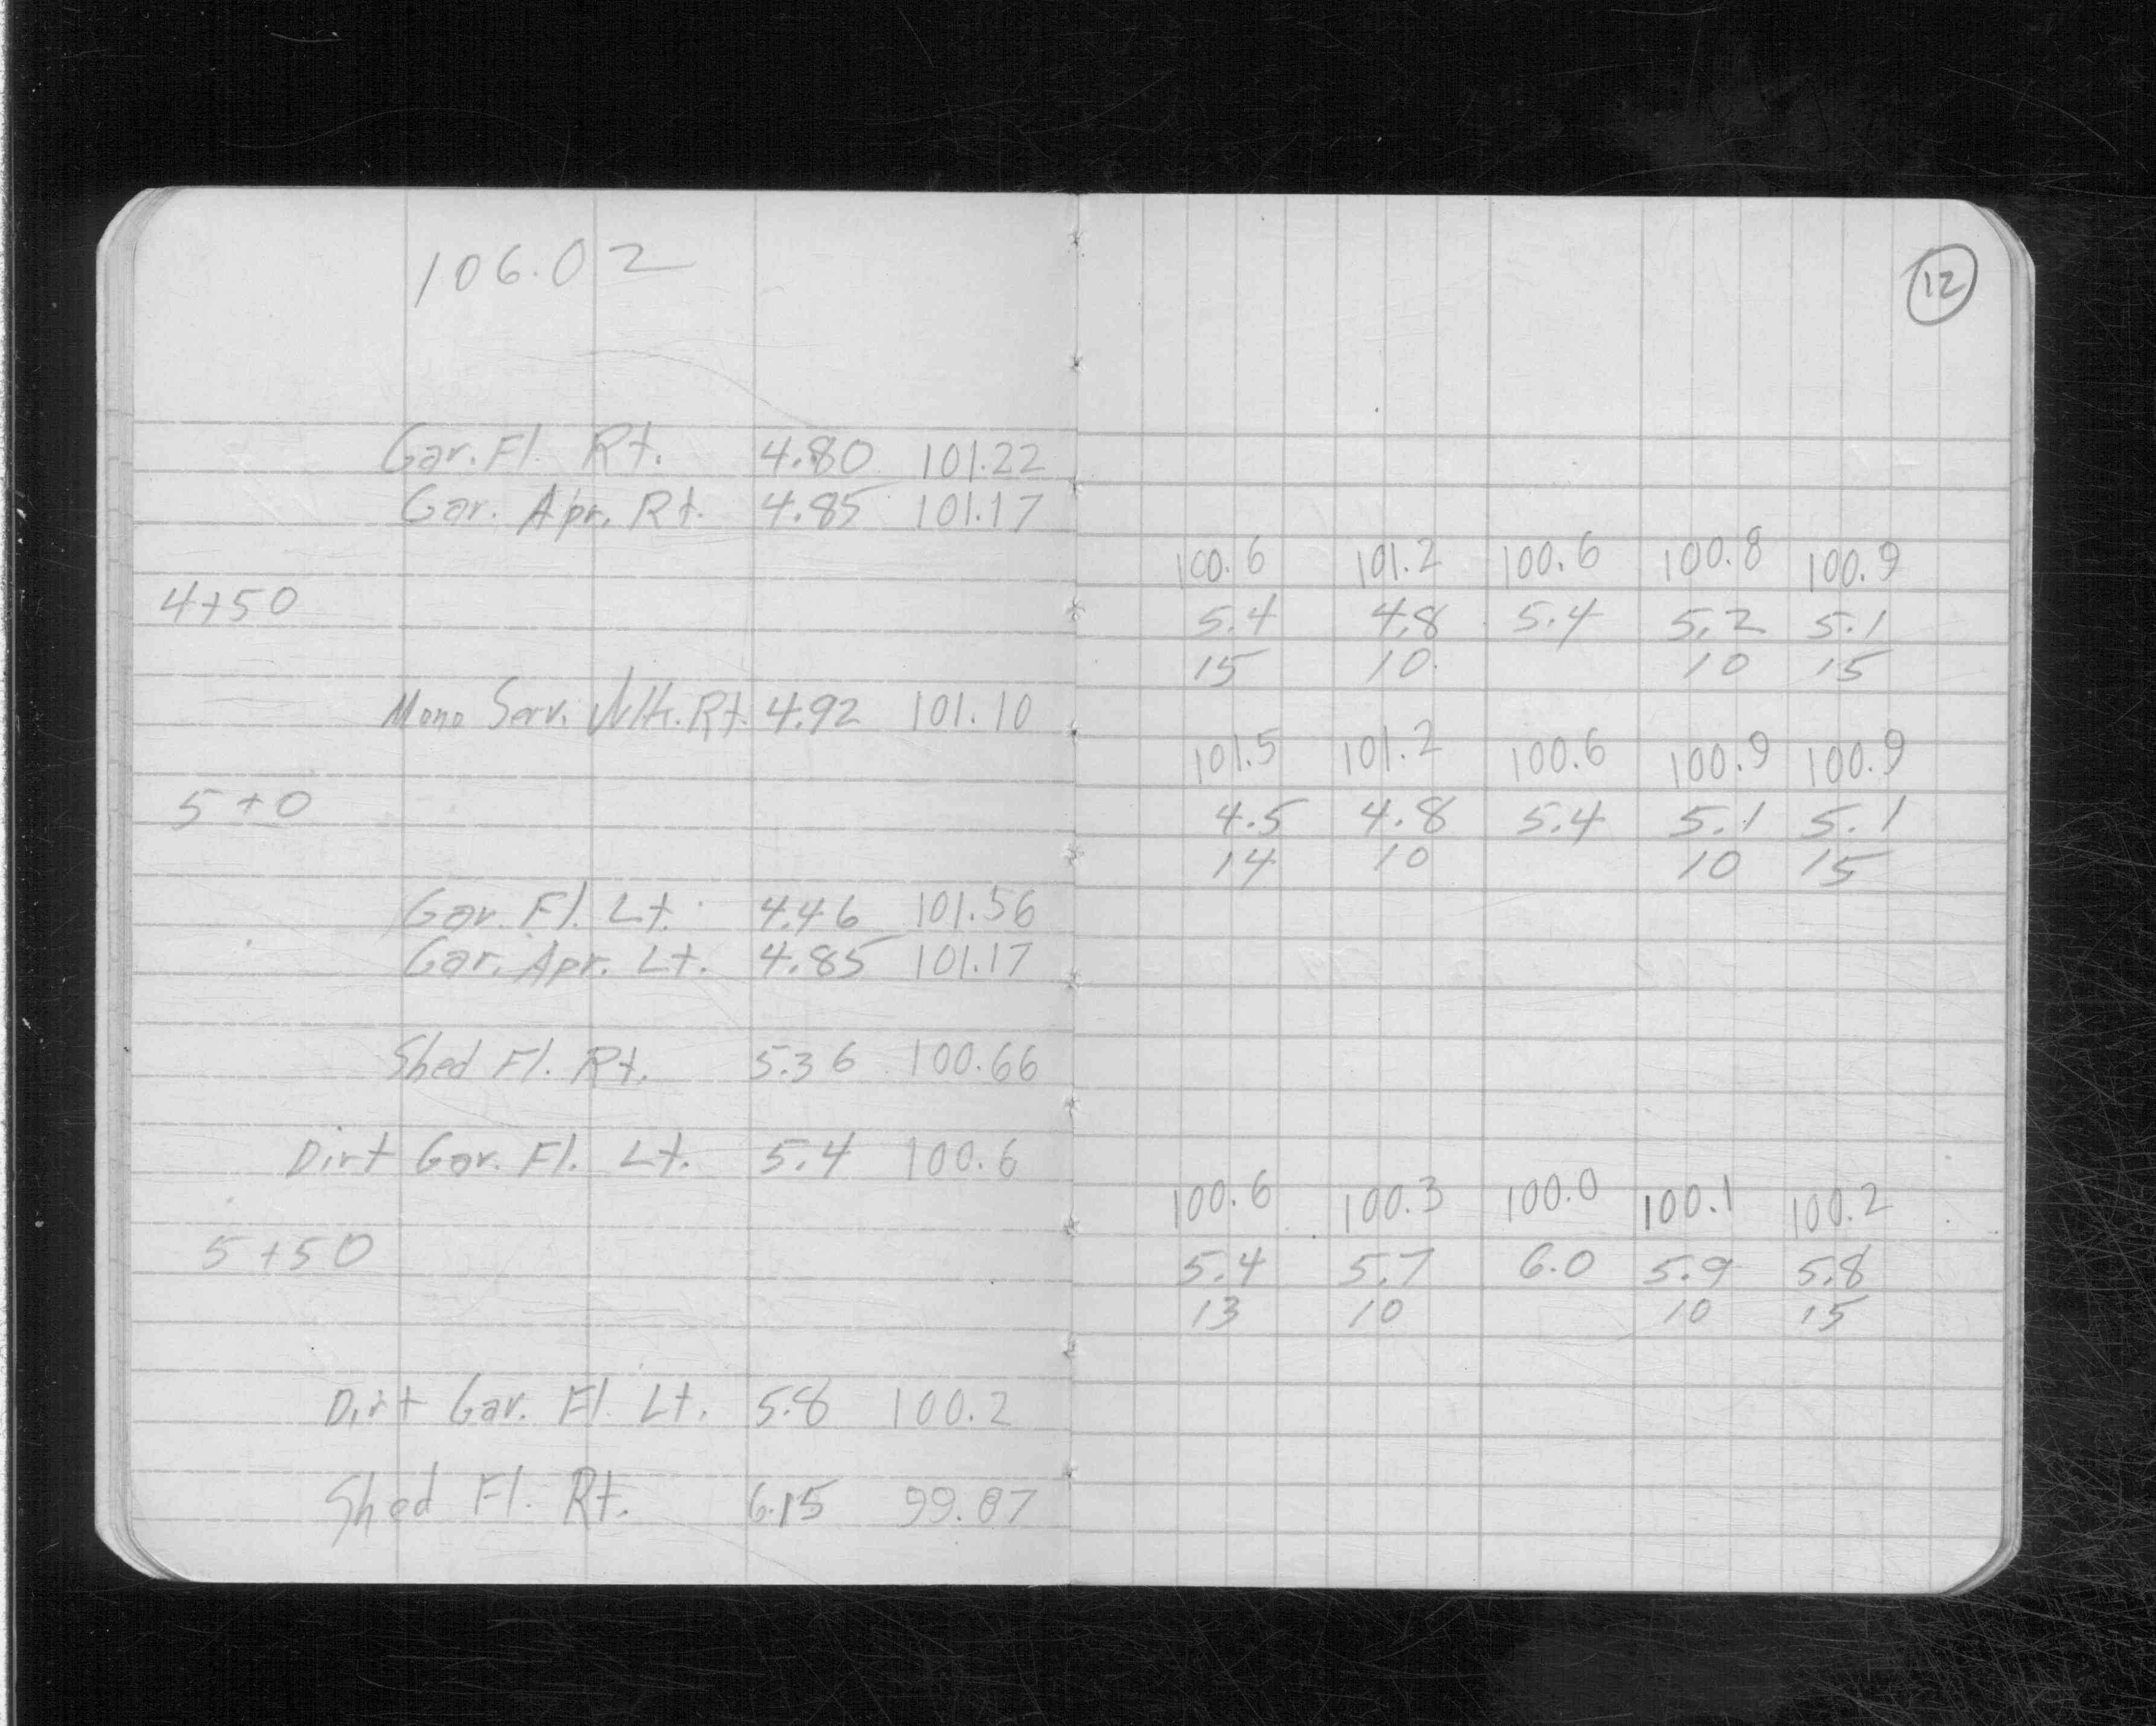 106.02
Gar. Fl. Rt. 4.80 101.22
Gar. Apr. Rt. 4.85 101.17
4+50
Mono Serv. Wlk. Rt. 4.92 101.10
5+0
Gar. Fl. Lt. 4.46 101.56
Gar. Apr. Lt. 4.85 101.17
Shed Fl. Rt. 5.36 100.66
Dirt Gar. Fl. Lt. 5.4 100.6
5+50
Dirt Gar. Fl. Lt. 5.8 100.2
Shed Fl. Rt. 6.15 99.87
12
100.6 101.2 100.6 100.8 100.9
5.4 4.8 5.4 5.2 5.1
15 10 10 15
101.5 101.2 100.6 100.9 100.9
4.5 4.8 5.4 5.1 5.1
14 10 10 15
100.6 100.3 100.0 100.1 100.2
5.4 5.7 6.0 5.9 5.8
13 10 10 15